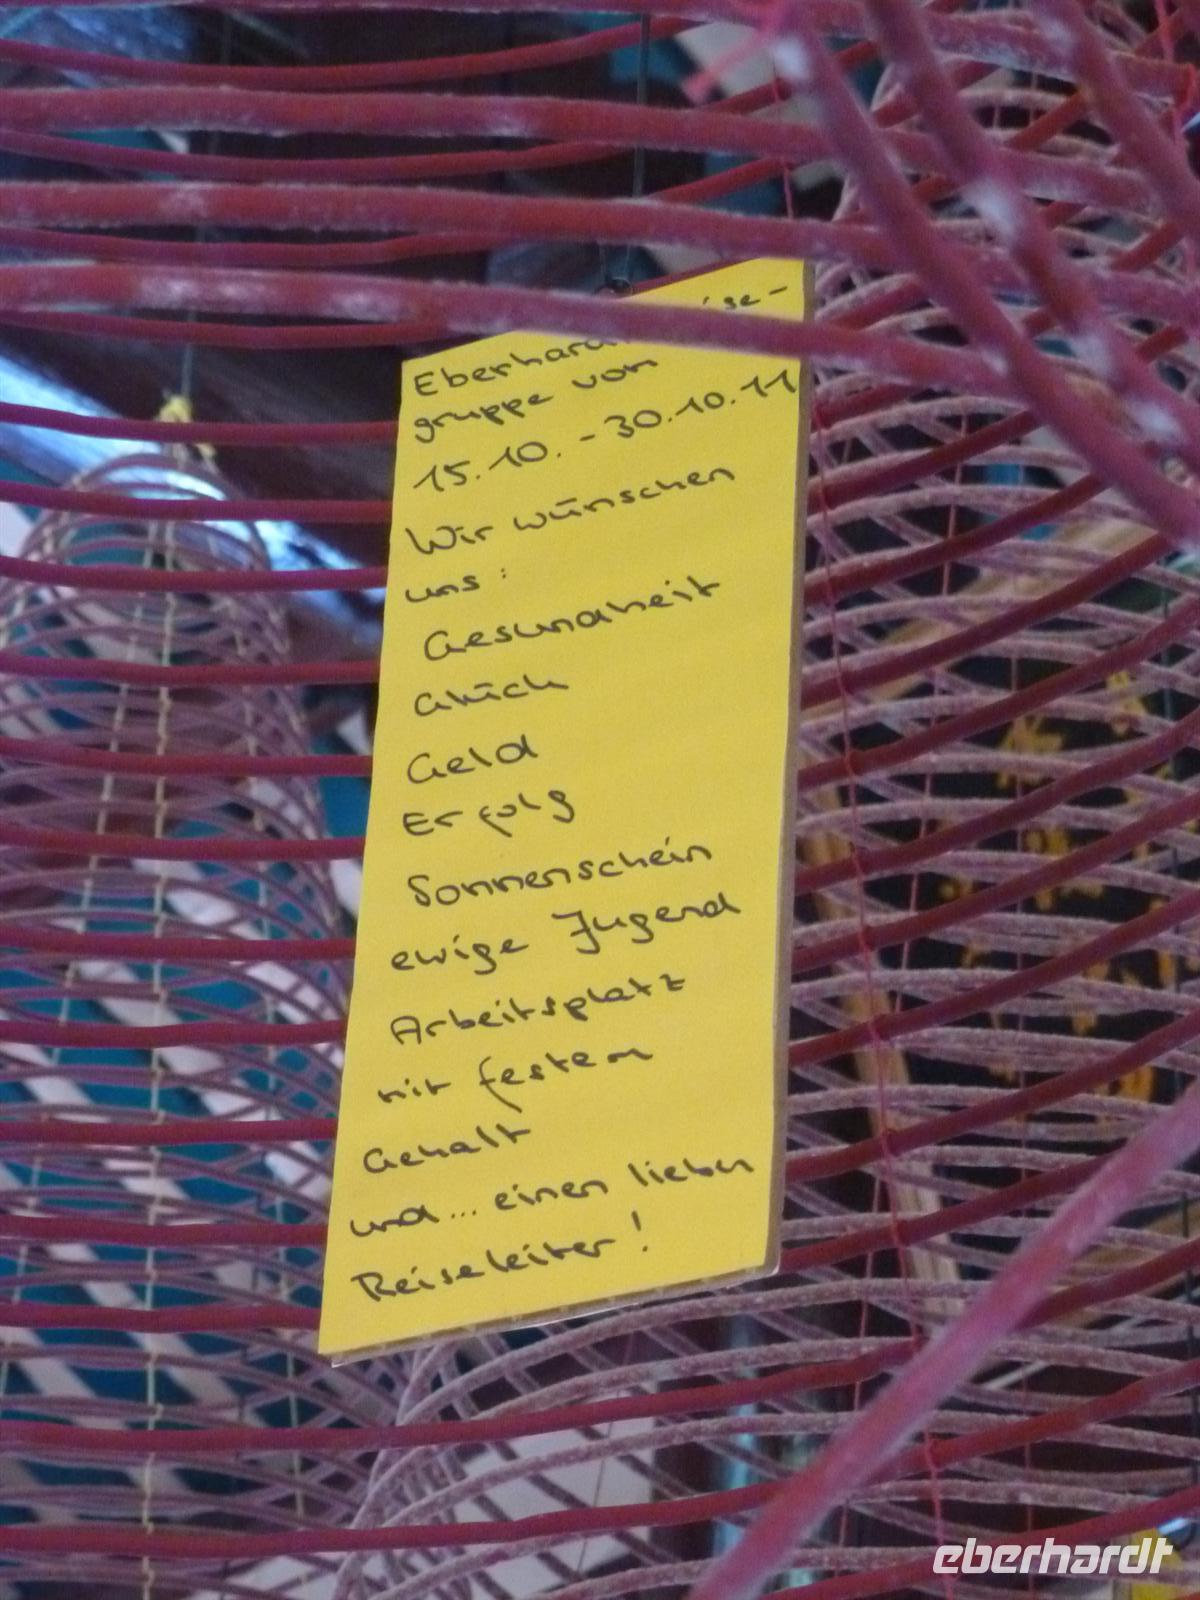 Eberhard ise-
gruppe von
15.10. - 30.10.11
Wir wünschen
uns:
Gesundheit
Glück
Geld
Erfolg
Sonnenschein
ewige Jugend
Arbeitsplatz
mit festem
Gehalt
und... einen lieben
Reiseleiter!
eberhardt